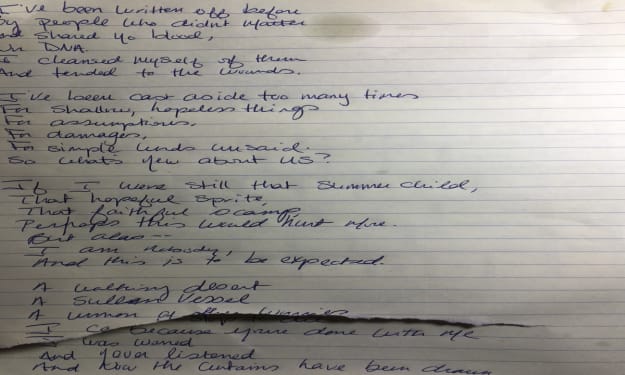 I've been written off before
by people who didnt matter
and shared no blood,
DNA.
I cleansed myself of them
And tended to the wounds.
I've been cast aside too many times
For shallow, hopeless things
For assumptions,
For damages,
For simple words unsaid.
So what's new about us?
If I were still that summer child,
That hopeful sprite,
That faithful scamp,
Perhaps this would hurt more.
But alas --
I am nobody,
And this is to be expected.
A walking desert
A sullen vessel
A woman of
I go because you're done with me
I was warned
And never listened
And now the curtains have been drawn